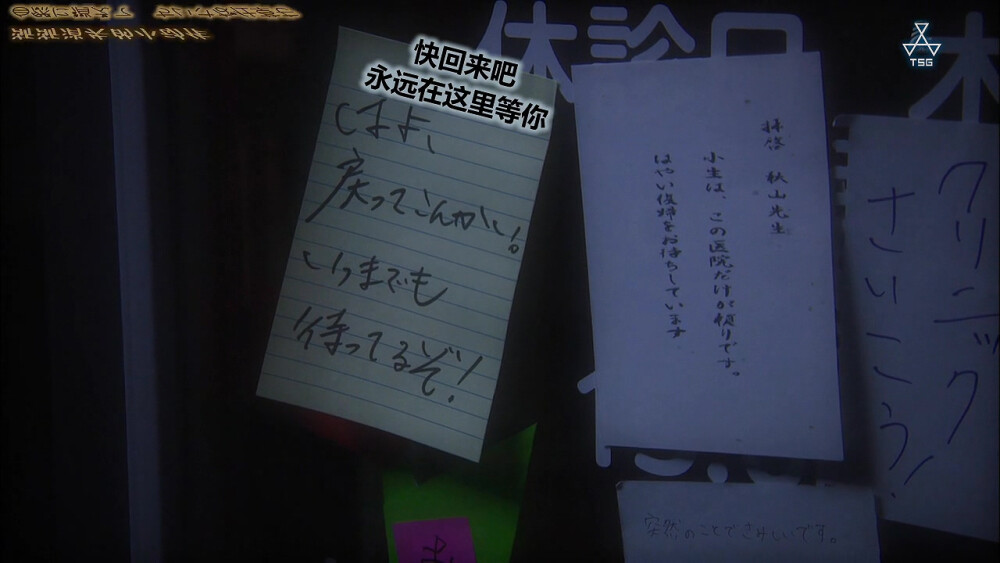 快回来吧
永远在这里等你
はよ、
戻ってこんかい!
いつまでも
待ってるぞ!
休診日
拝啓 秋山先生
小生は、この医院だけが頼りです。
はやい復帰をお待ちしています
木
クリニック
さいこう!
突然のことでさみしいです。
TSG